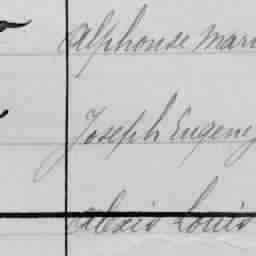 Alphonse Mari
Joseph Eugene
Alexis Louis